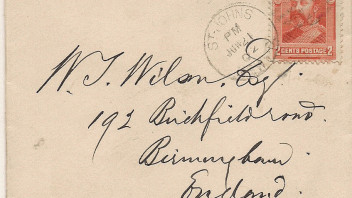 ST. JOHN'S
PM
JUN
CENTS POSTAGE 2
W. J. Wilson, Esq.
192 Birchfield road.
Birmingham.
England.